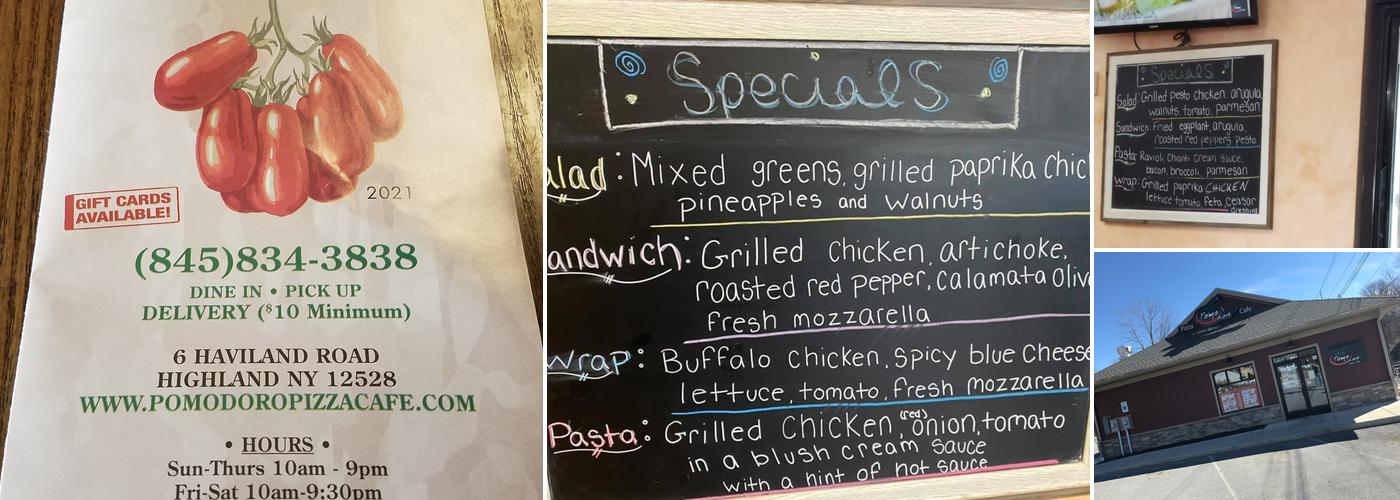 2021
GIFT CARDS
AVAILABLE!
(845)834-3838
DINE IN • PICK UP
DELIVERY ($10 Minimum)
6 HAVILAND ROAD
HIGHLAND NY 12528
WWW.POMODOROPIZZACAFE.COM
• HOURS •
Sun-Thurs 10am - 9pm
Fri-Sat 10am-9:30pm
Specials
alad: Mixed greens, grilled paprika Chic
pineapples and walnuts
andwich: Grilled chicken, artichoke,
roasted red pepper, Calamata Oliv
fresh mozzarella
Wrap: Buffalo chicken, spicy blue Cheese
lettuce, tomato, fresh mozzarella
Pasta: Grilled Chicken, (red) onion, tomato
in a blush cream sauce
with a hint of hot sauce
Specials
Salad: Grilled pesto chicken, arugula,
walnuts, tomato, parmesan
Sandwich: Fried eggplant, arugula,
roasted red peppers, pesto
Pasta: Ravioli, Chianti cream sauce,
bacon, broccoli, parmesan
Wrap: Grilled paprika CHICKEN
lettuce, tomato, feta, Ceasar
dressing
Pizza Pomodoro Cafe